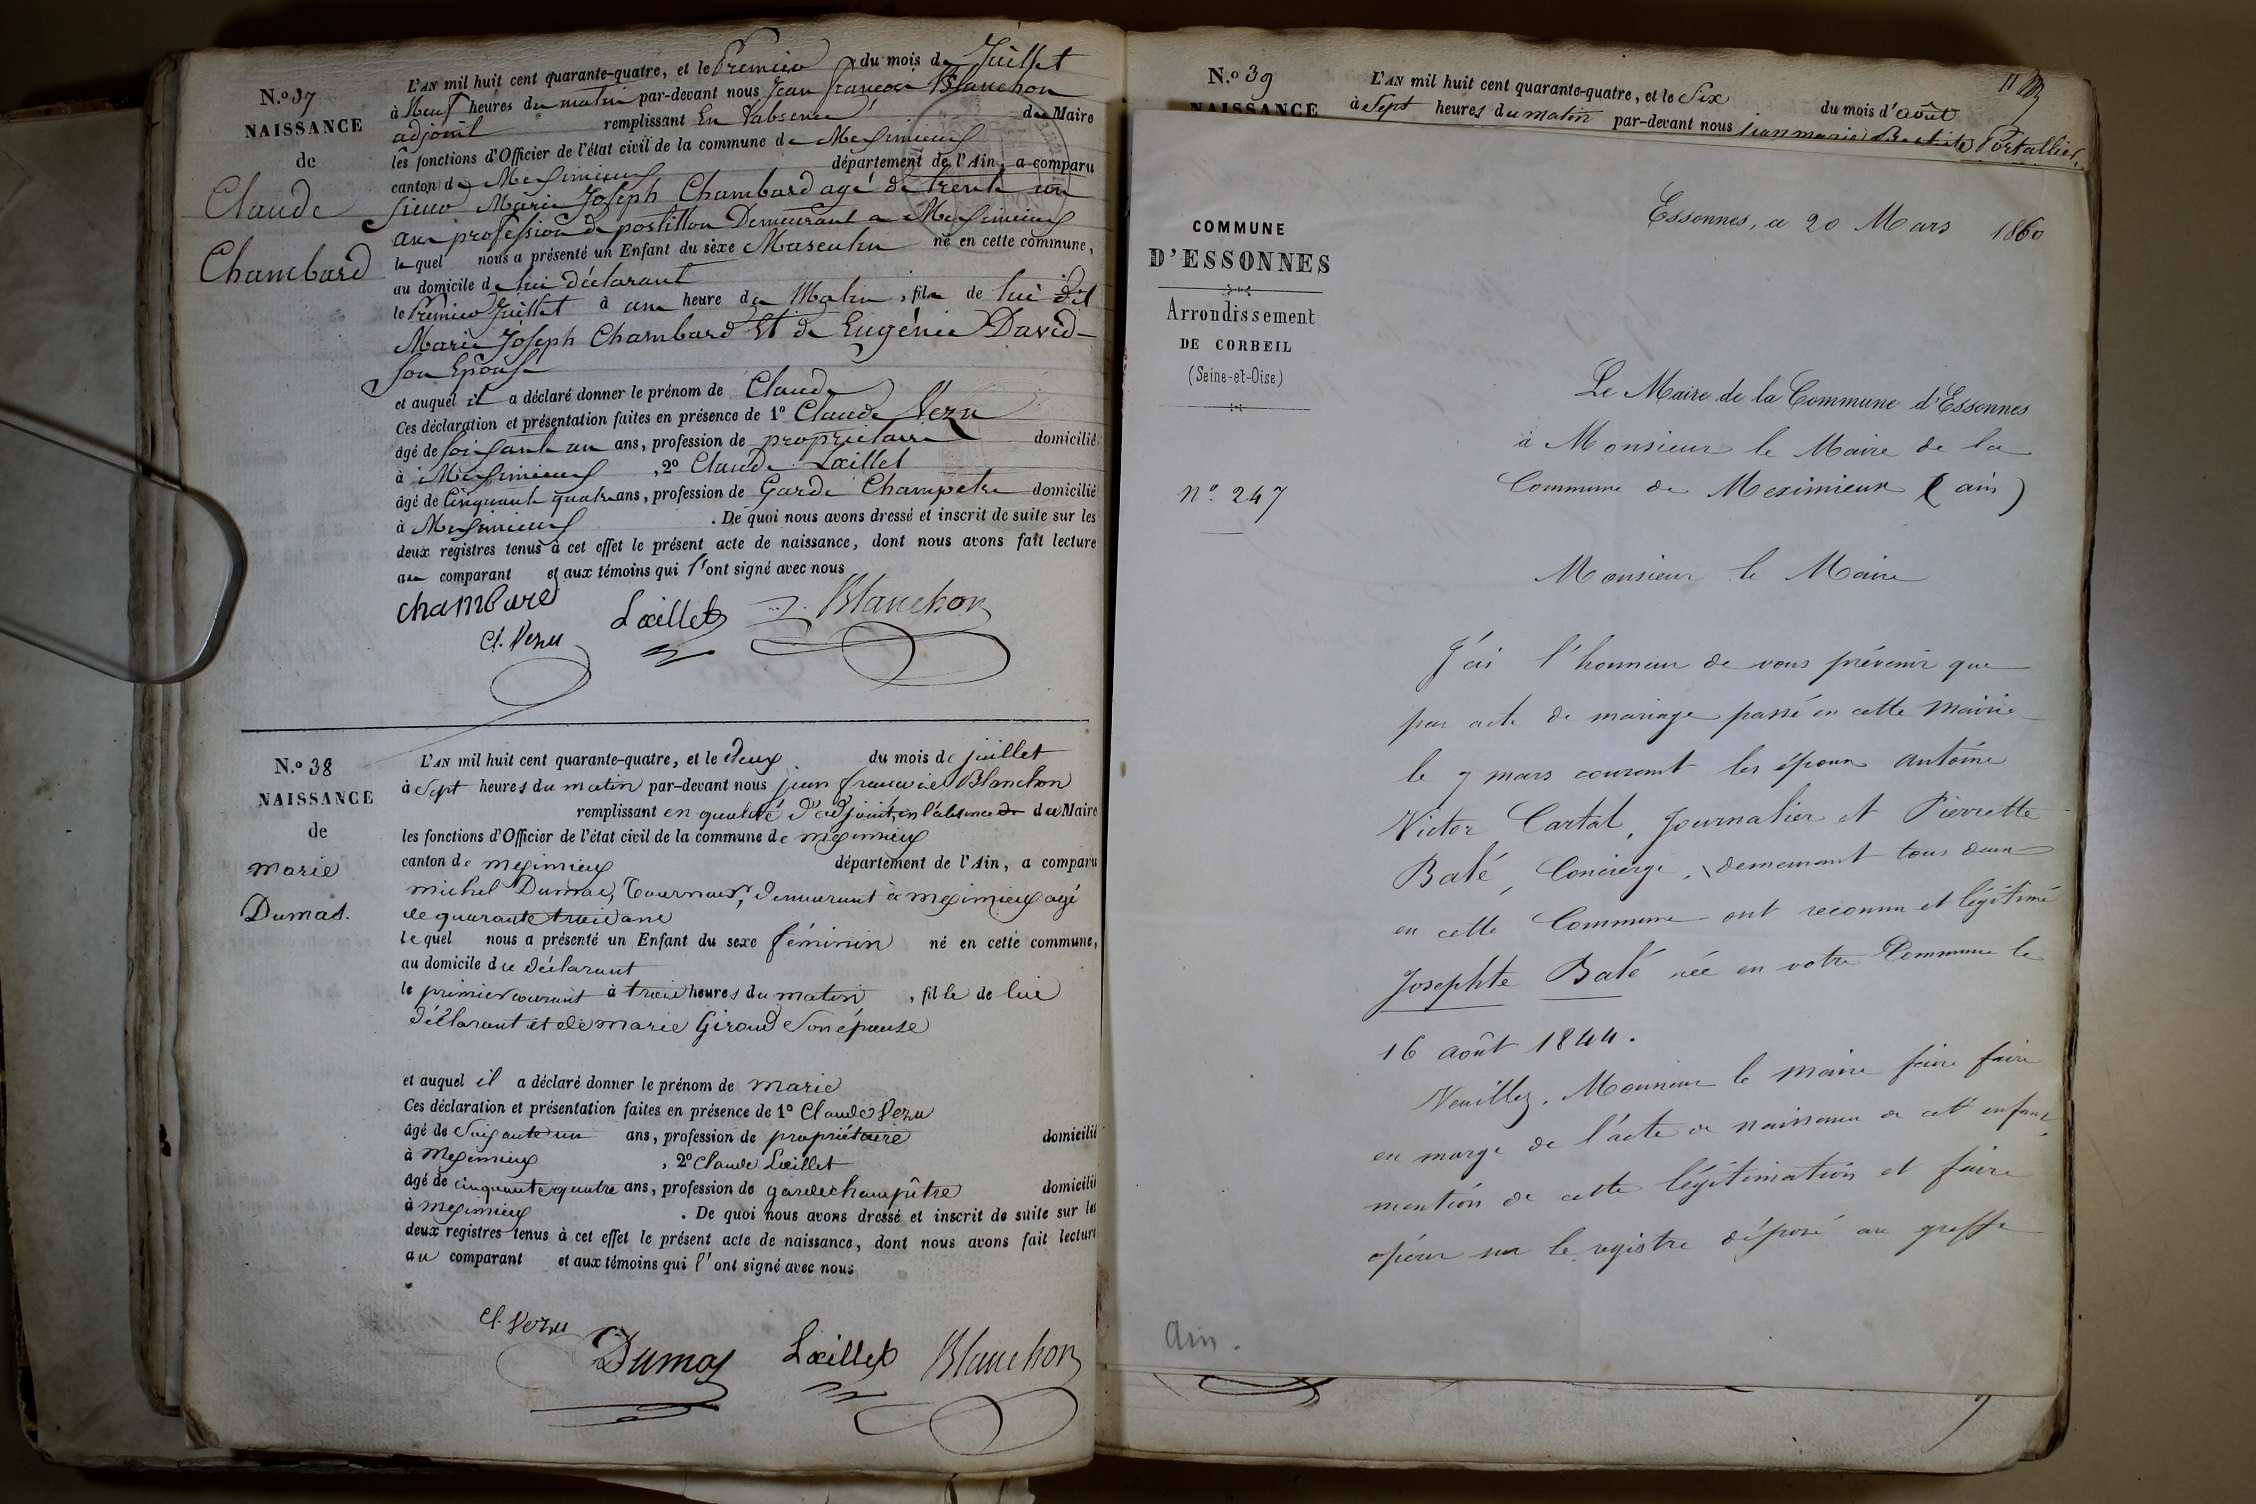 N.º 37
NAISSANCE
de
Claude
Chambard
L'AN mil huit cent quarante-quatre, et le Premier du mois de Juillet
à Neuf heures du matin par-devant nous Jean françois Blanchon
adjoint remplissant En l'absence du Maire
les fonctions d'Officier de l'état civil de la commune de Meximieux
canton de Meximieux département de l'Ain, a comparu
sieur Marie Joseph Chambard agé de trente un
ans profession de postillon Demeurant a Meximieux
lequel nous a présenté un Enfant du sèxe Masculin né en cette commune,
au domicile de lui déclarant
le Premier Juillet à une heure du Matin, fils de lui dit
Marie Joseph Chambard Et de Eugénie David
son Epouse
et auquel il a déclaré donner le prénom de Claude
Ces déclaration et présentation faites en présence de 1º Claude Vezu
âgé de soixante un ans, profession de propriétaire domicilié
à Meximieux, 2º Claude Lœillet
âgé de Cinquante quatre ans, profession de Garde Champetre domicilié
à Meximieux. De quoi nous avons dressé et inscrit de suite sur les
deux registres tenus à cet effet le présent acte de naissance, dont nous avons fait lecture
au comparant et aux témoins qui l'ont signé avec nous
chambard
Cl. Vezu
Lœillet
Blanchon
N.º 38
NAISSANCE
de
marie
Dumas.
L'AN mil huit cent quarante-quatre, et le deux du mois de juillet
à Sept heures du matin par-devant nous jean françois Blanchon
remplissant en qualité d'adjoint, en l'absence du Maire
les fonctions d'Officier de l'état civil de la commune de meximieux
canton de meximieux département de l'Ain, a comparu
michel Dumas, Tourneur, demeurant à meximieux agé
de quarante trois ans
lequel nous a présenté un Enfant du sexe féminin né en cette commune,
au domicile du déclarant
le premier courant à trois heures du matin, fille de lui
déclarant et de marie Giroud son épouse
et auquel il a déclaré donner le prénom de marie
Ces déclaration et présentation faites en présence de 1º Claude Vezu
âgé de soixante un ans, profession de propriétaire domicilié
à meximieux, 2º Claude Lœillet
âgé de cinquante quatre ans, profession de garde champêtre domicilié
à meximieux. De quoi nous avons dressé et inscrit de suite sur les
deux registres tenus à cet effet le présent acte de naissance, dont nous avons fait lecture
au comparant et aux témoins qui l'ont signé avec nous
Cl. Vezu
Dumas
Lœillet
Blanchon
N.º 39
NAISSANCE
L'AN mil huit cent quarante-quatre, et le Six du mois d'août
à Sept heures du matin par-devant nous jean marie Portallier
COMMUNE
D'ESSONNES
Arrondissement
DE CORBEIL
(Seine-et-Oise)
nº 247
Essonnes, ce 20 Mars 1860
Le Maire de la Commune d'Essonnes
à Monsieur le Maire de la
Commune de Meximieux (ain)
Monsieur le Maire
J'ai l'honneur de vous prévenir que
par acte de mariage passé en cette Mairie
le 7 mars courant les époux Antoine
Victor Cartal, Journalier et Pierrette
Balé, Concierge, demeurant tous deux
en cette Commune ont reconnu et légitimé
Josephte Balé née en votre Commune le
16 août 1844.
Veuillez, Monsieur le Maire faire faire
en marge de l'acte de naissance de cet enfant
mention de cette légitimation et faire
opérer sur le registre déposé au greffe
Ain.